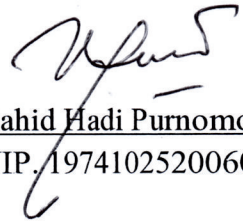 ahid Hadi Purnomo
IP. 1974102520060